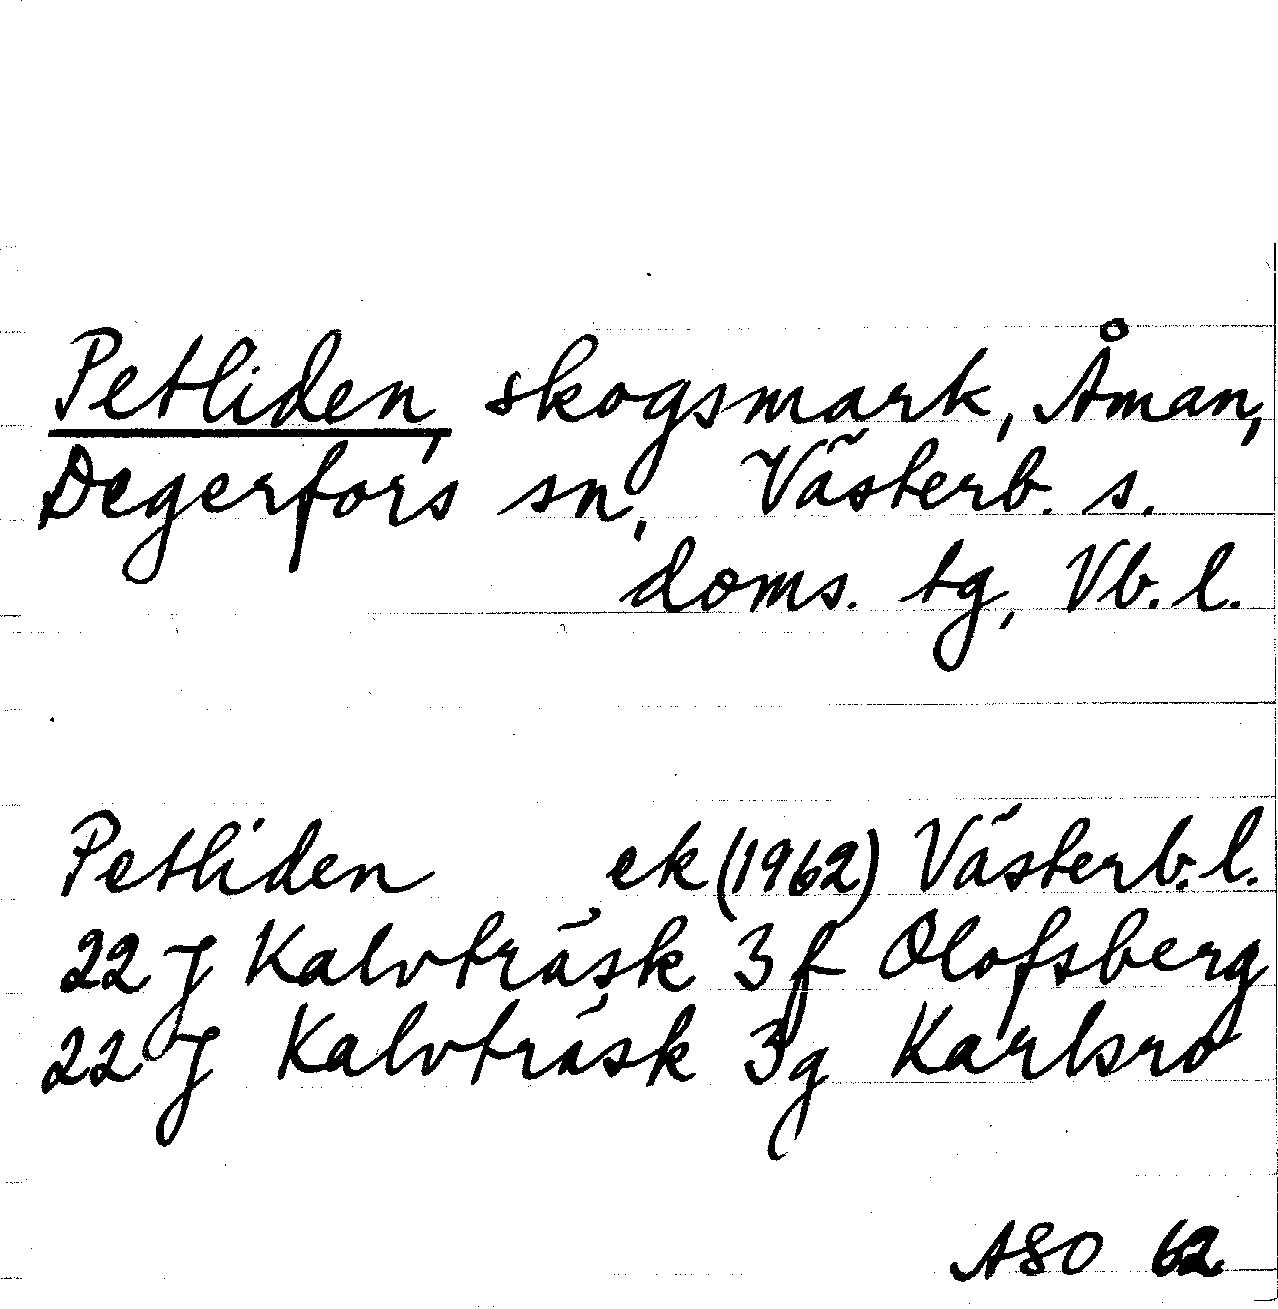 Petliden, skogsmark, Åman,
Degerfors sn, Västerb. s.
doms. tg, Vb. l.
Petliden ek (1962) Västerb. l.
22 J Kalvträsk 3 f Olofsberg
22 J Kalvträsk 3 g Karlsro
ASO 62